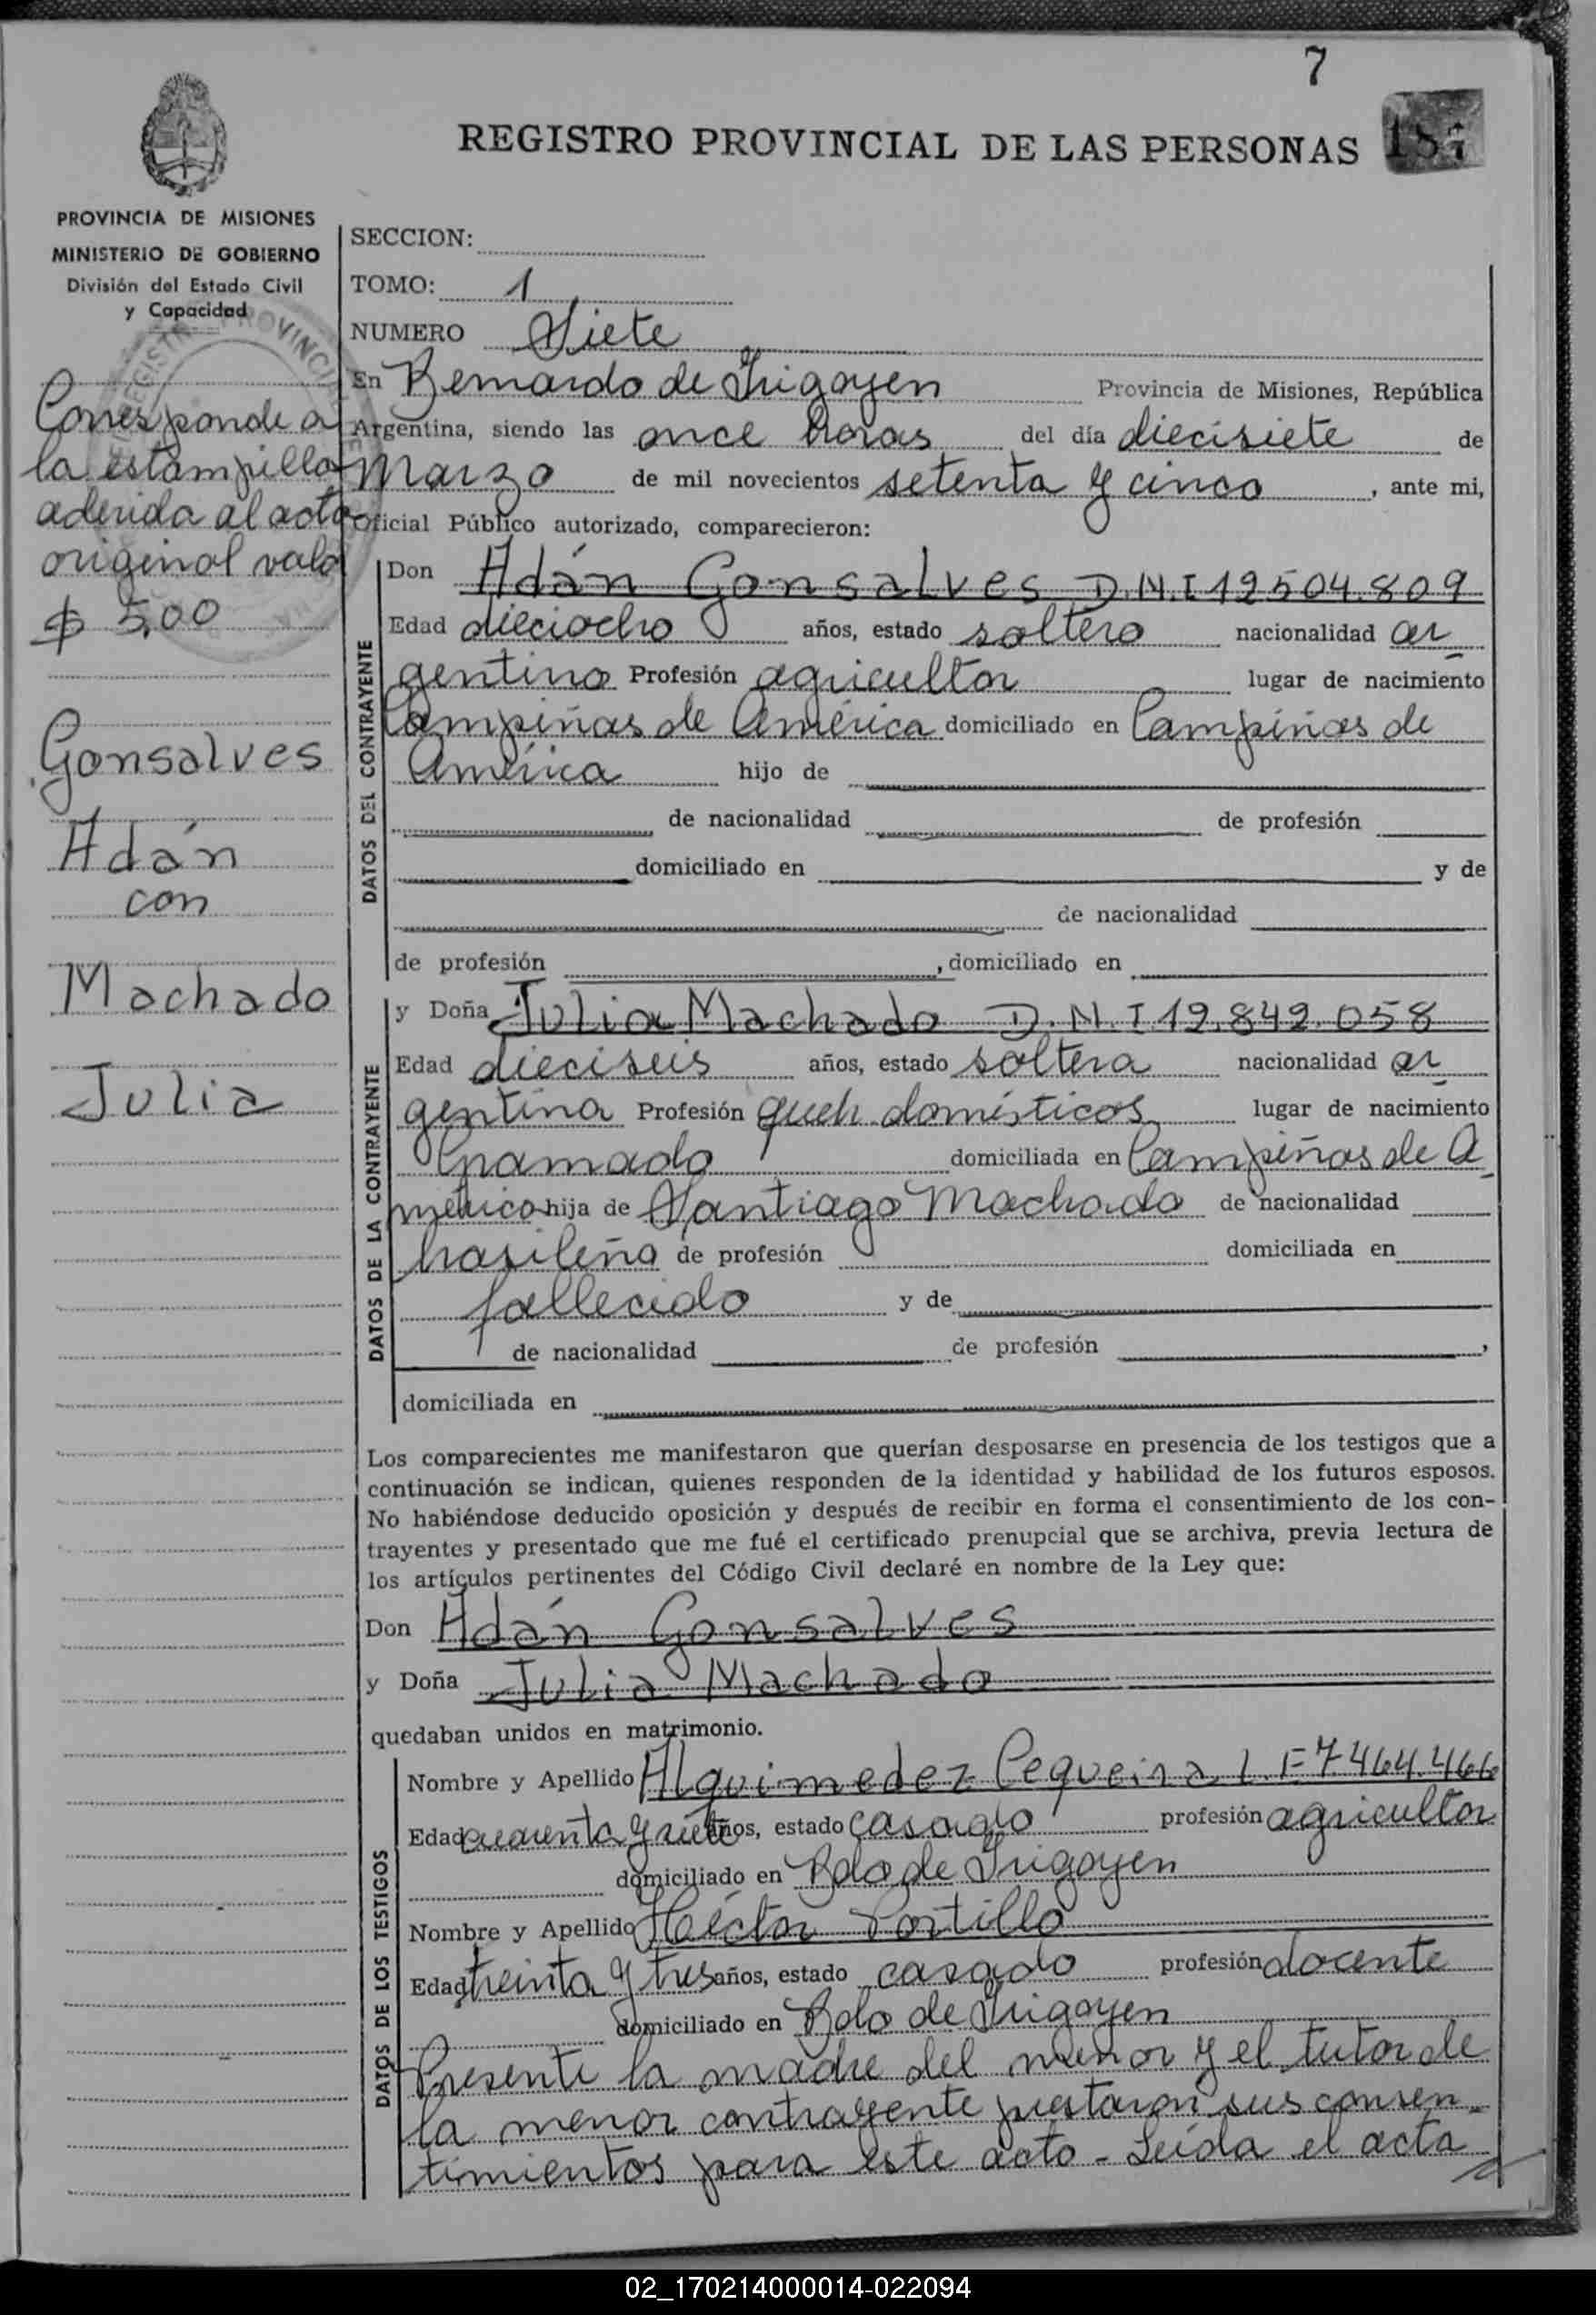 7
REGISTRO PROVINCIAL DE LAS PERSONAS
187
PROVINCIA DE MISIONES
MINISTERIO DE GOBIERNO
División del Estado Civil
y Capacidad
Corresponde a
la estampilla
aderida al acta
original valo
$ 5,00
Gonsalves
Adán
con
Machado
Julia
SECCION:
TOMO: 1
NUMERO Siete
En Bernardo de Irigoyen Provincia de Misiones, República
Argentina, siendo las once horas del día diecisiete de
Marzo de mil novecientos setenta y cinco, ante mi,
Oficial Público autorizado, comparecieron:
DATOS DEL CONTRAYENTE
Don Adán Gonsalves D.N.I 12.504.809
Edad dieciocho años, estado soltero nacionalidad ar
gentino Profesión agricultor lugar de nacimiento
Campiñas de América domiciliado en Campiñas de
América hijo de
de nacionalidad de profesión
domiciliado en y de
de nacionalidad
de profesión , domiciliado en
DATOS DE LA CONTRAYENTE
y Doña Julia Machado D.N.I 12.842.058
Edad dieciseis años, estado soltera nacionalidad ar
gentina Profesión queh. domésticos lugar de nacimiento
domiciliada en Campiñas de A
mérica hija de Santiago Machado de nacionalidad
brasileña de profesión domiciliada en
fallecido y de
de nacionalidad de profesión ,
domiciliada en
Los comparecientes me manifestaron que querían desposarse en presencia de los testigos que a
continuación se indican, quienes responden de la identidad y habilidad de los futuros esposos.
No habiéndose deducido oposición y después de recibir en forma el consentimiento de los con-
trayentes y presentado que me fué el certificado prenupcial que se archiva, previa lectura de
los artículos pertinentes del Código Civil declaré en nombre de la Ley que:
Don Adán Gonsalves
y Doña Julia Machado
quedaban unidos en matrimonio.
DATOS DE LOS TESTIGOS
Nombre y Apellido Alquimedez Cequeira L.E 7464.466
Edad cuarenta y siete años, estado casado profesión agricultor
domiciliado en Bdo de Irigoyen
Nombre y Apellido Héctor Portillo
Edad treinta y tres años, estado casado profesión docente
domiciliado en Bdo de Irigoyen
Presente la madre del menor y el tutor de
la menor contrayente prestaron sus consen-
timientos para este acto - Leída el acta
02_170214000014-022094